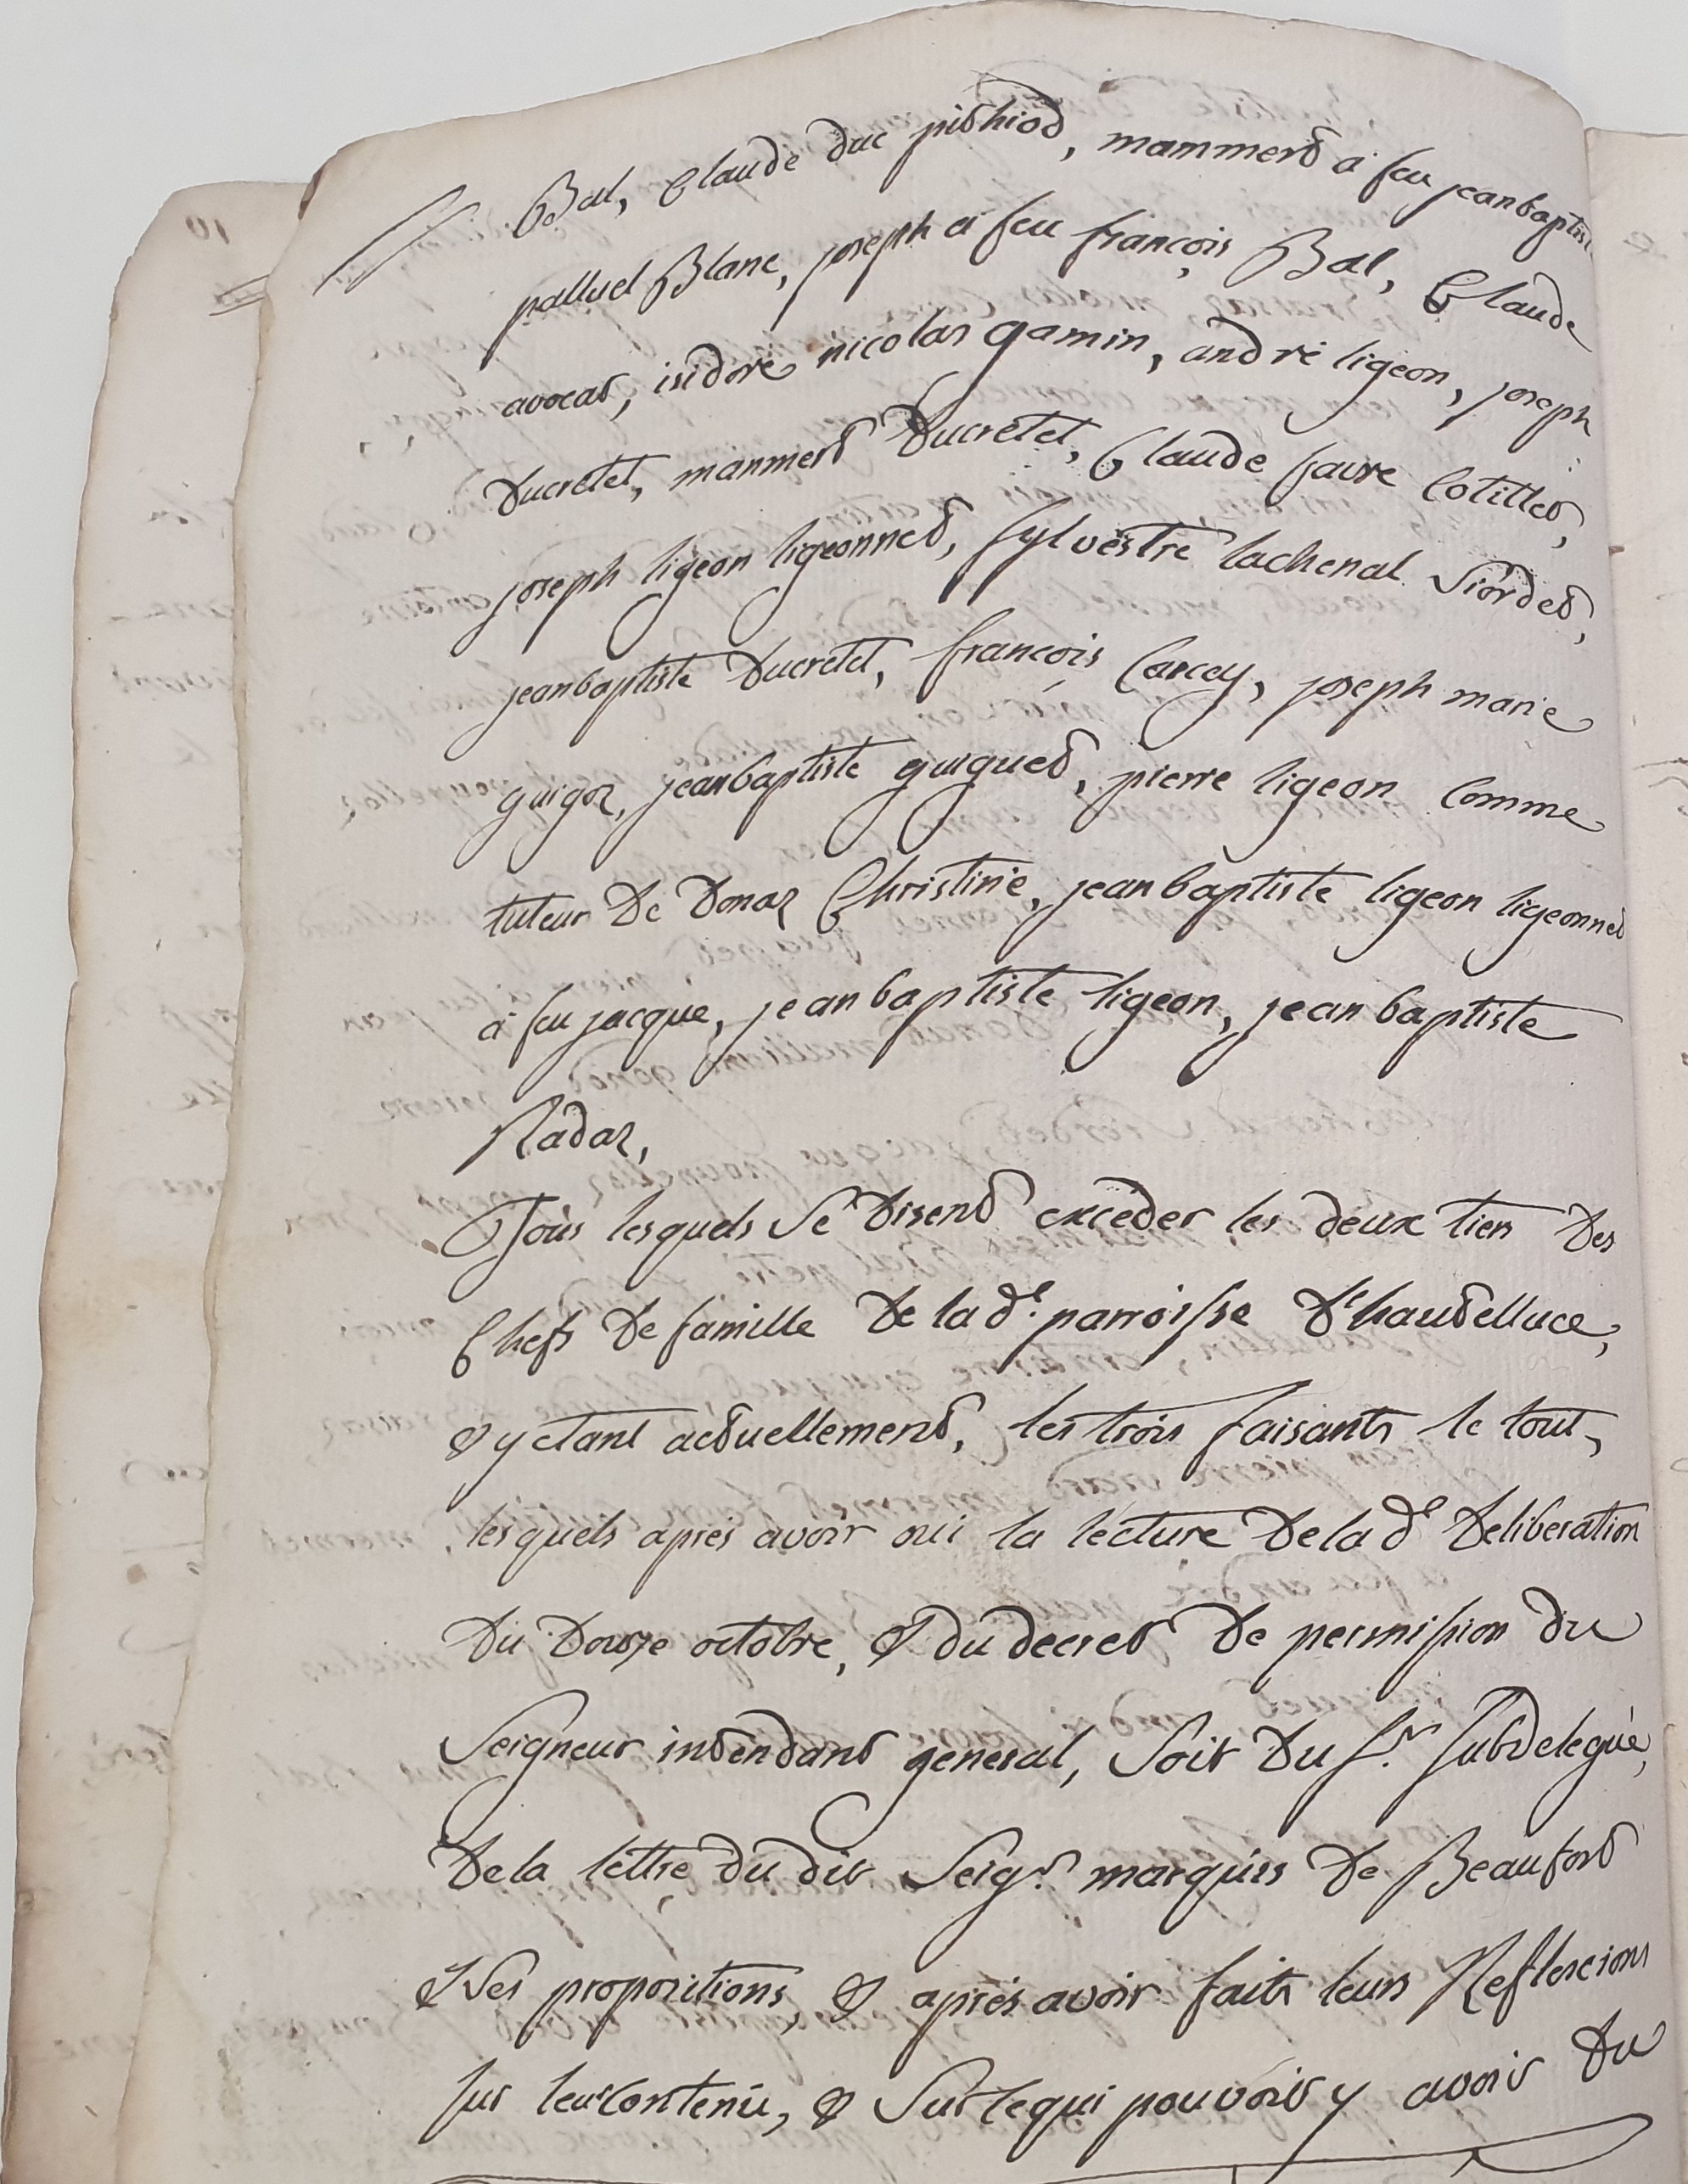 Bal, Claude duc pichiod, mammert à feu jeanbaptiste
palluel Blanc, joseph à feu françois Bal, Claude
avocat, isidore nicolas gamin, andré ligeon, joseph
Ducrétet, mammert Ducrétet, Claude favre Cotillet,
joseph ligeon ligeonnet, Sylvestre lachenal Siordet,
jeanbaptiste Ducrétet, françois Carcey, joseph marie
guigoz, jeanbaptiste guiguet, pierre ligeon Comme
tuteur De Donaz Christine, jeanbaptiste ligeon ligeonnet
à feu jacque, jeanbaptiste ligeon, jeanbaptiste
Nadaz,
Tous lesquels Se Disent excéder les deux tiers Des
Chefs De famille De la de. parroisse D'hautelluce,
& y etant actuellement, les trois faisants le tout,
lesquels après avoir oüi la lecture De la de Deliberation
Du Douze octobre, & du decret De permission du
Seigneur intendant general, Soit Du Sr. Subdelegué,
De la lettre du dit Seigr. marquis De Beaufort
& Ses propositions, & après avoir faits leurs Reflexcions
sur leur Contenü, & Sur le qui pouvoit y avoir Du